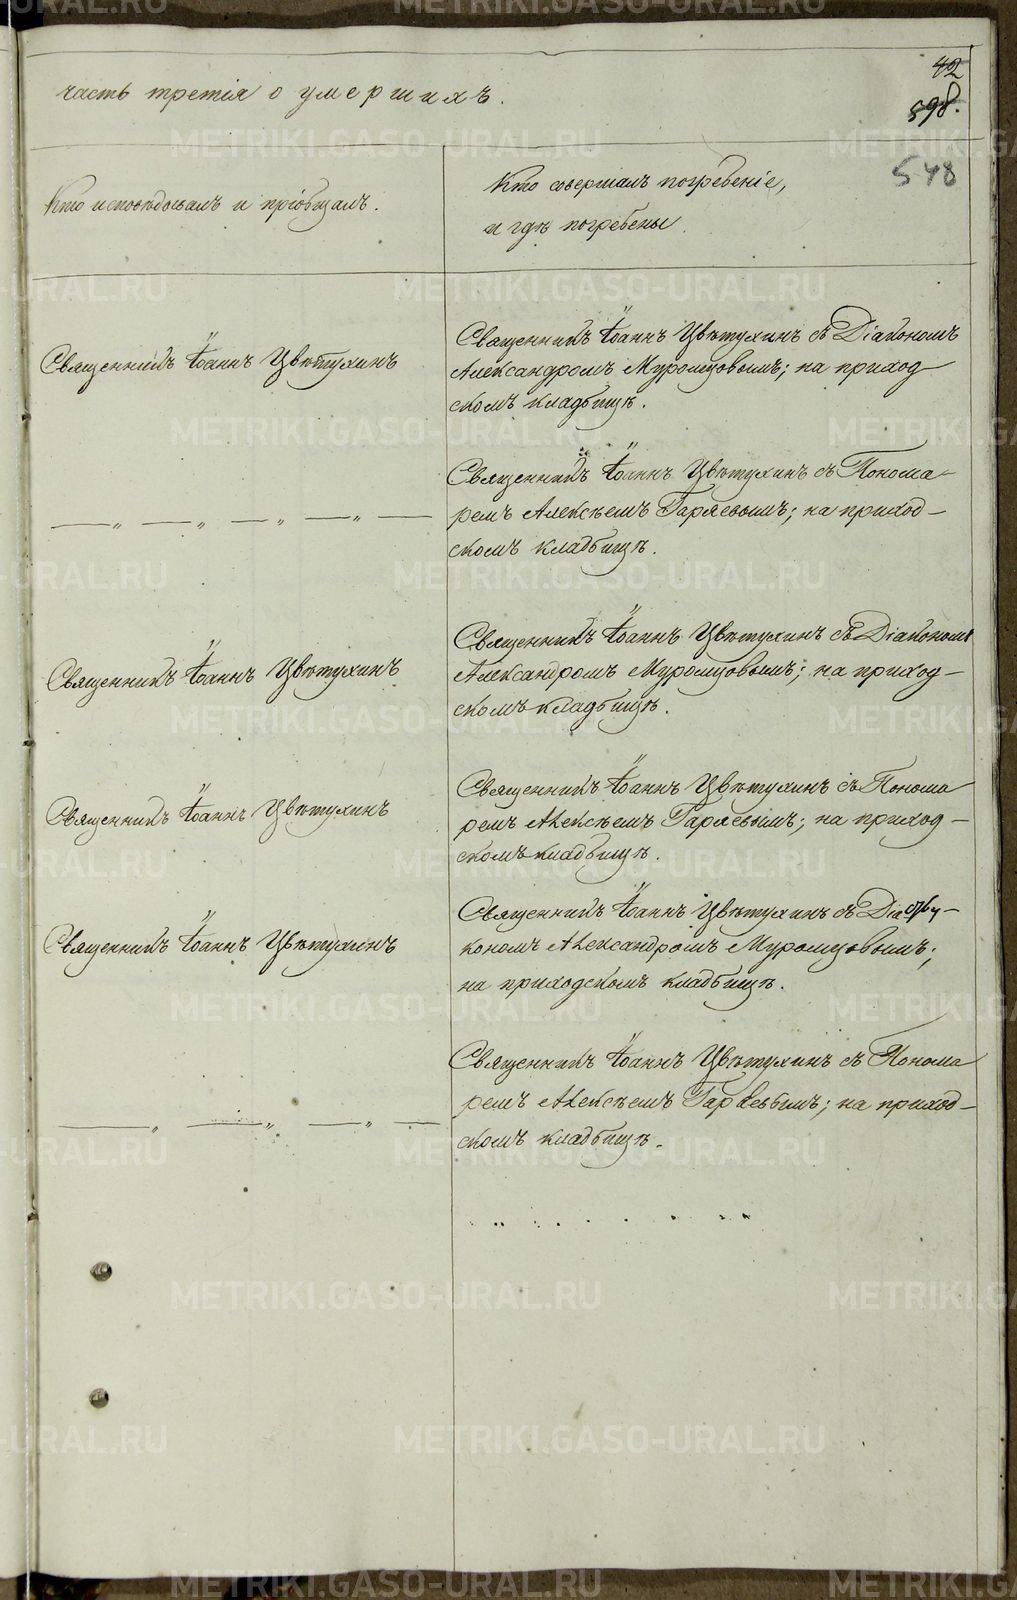 часть третія о умершихъ.
42
598.
548
Кто исповѣдовалъ и пріобщалъ.
Кто совершалъ погребеніе,
и гдѣ погребены.
Священникъ Іоаннъ Цвѣтухинъ
Священникъ Іоаннъ Цвѣтухинъ съ Діакономъ
Александромъ Муромцовымъ; на приход
скомъ кладбищѣ.
— „ — „ — „ — „ —
Священникъ Іоаннъ Цвѣтухинъ съ Понома-
ремъ Алексѣемъ Гаряевымъ; на приход-
скомъ кладбищѣ.
Священникъ Іоаннъ Цвѣтухинъ
Священникъ Іоаннъ Цвѣтухинъ съ Діакономъ
Александромъ Муромцовымъ; на приход-
скомъ кладбищѣ.
Священникъ Іоаннъ Цвѣтухинъ
Священникъ Іоаннъ Цвѣтухинъ съ Понома
ремъ Алексѣемъ Гаряевымъ; на приход-
скомъ кладбищѣ.
Священникъ Іоаннъ Цвѣтухинъ
Священникъ Іоаннъ Цвѣтухинъ съ Діа
кономъ Александромъ Муромцовымъ;
на приходскомъ кладбищѣ.
— „ — „ — „ —
Священникъ Іоаннъ Цвѣтухинъ съ Понома
ремъ Алексѣемъ Гаряевымъ; на приход-
скомъ кладбищѣ.
METRIKI.GASO-URAL.RU